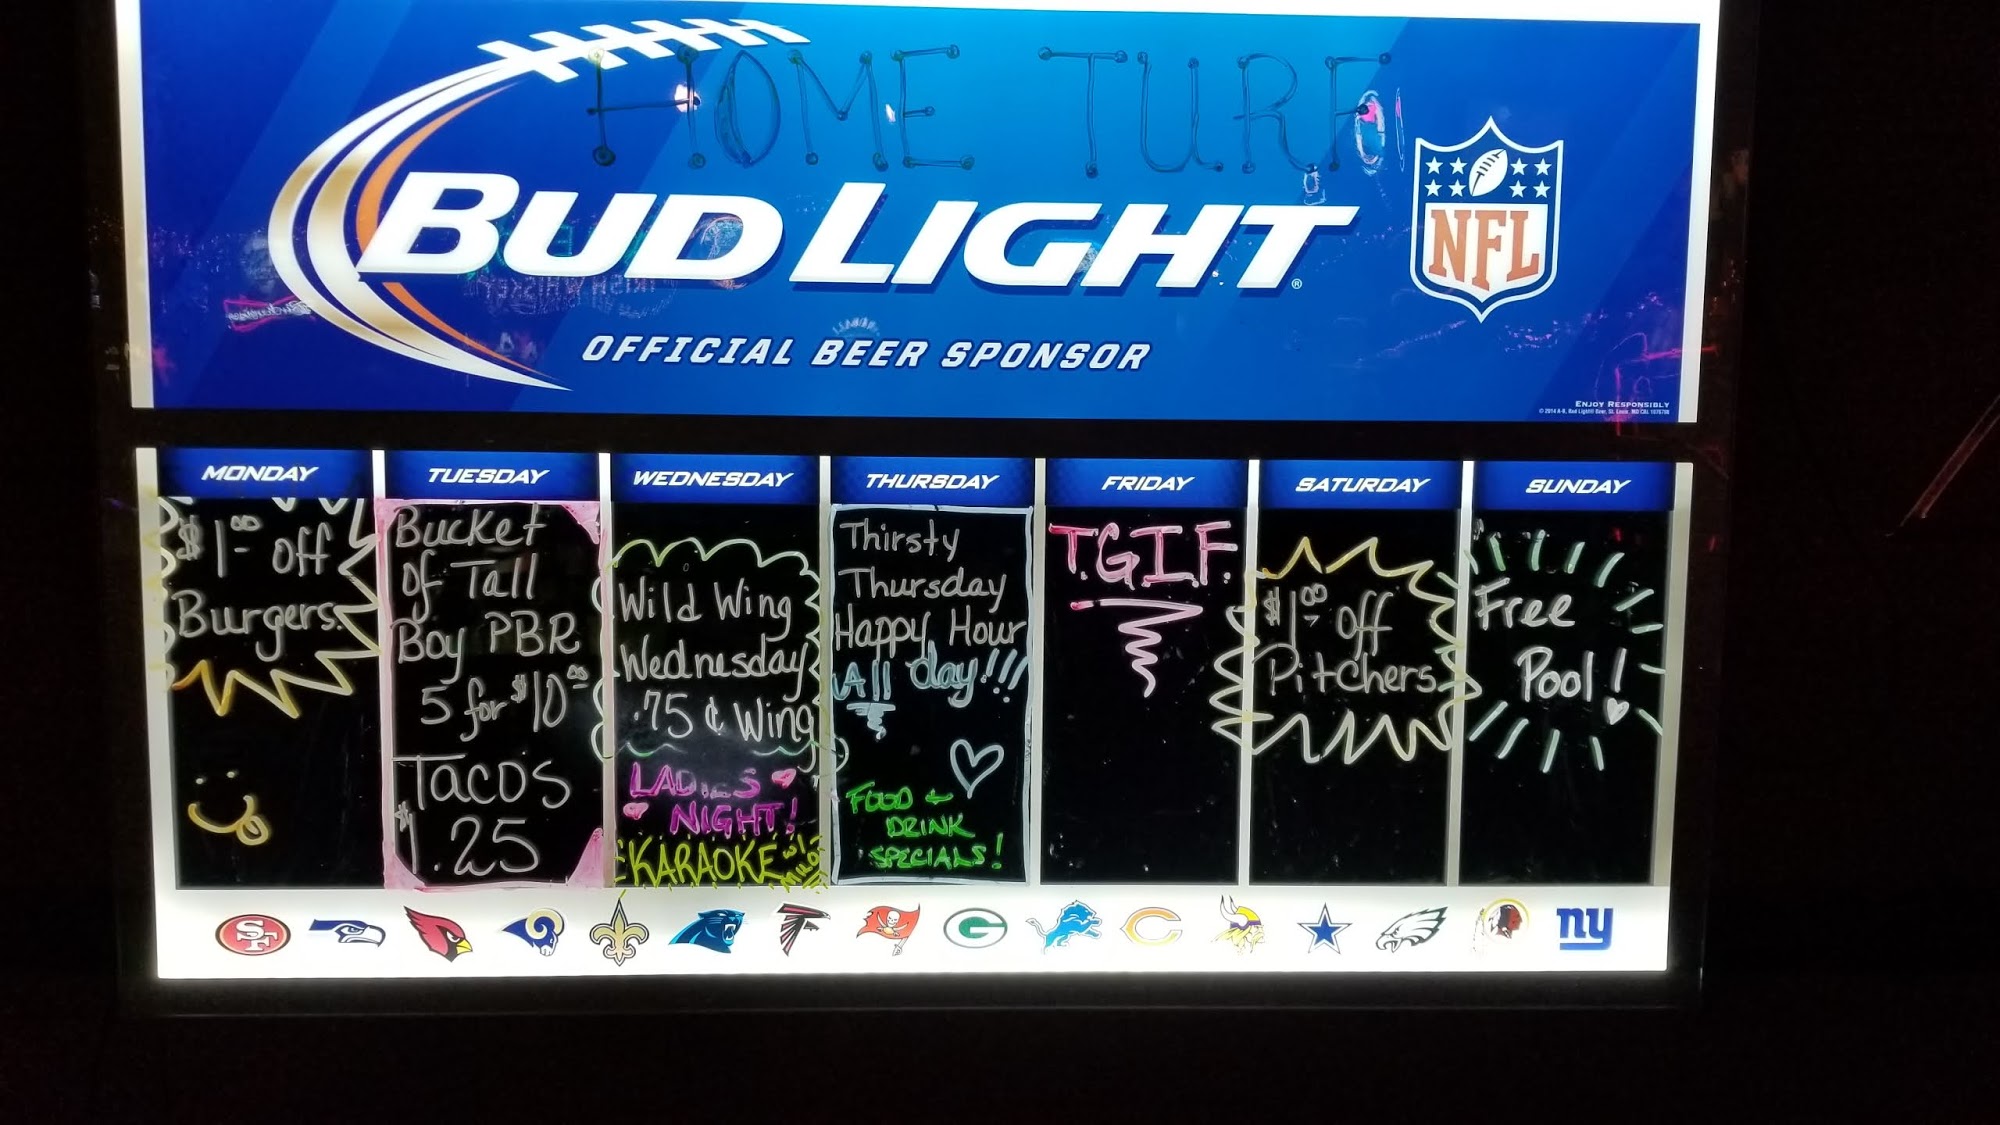 HOME TURF
BUD LIGHT
®
NFL
OFFICIAL BEER SPONSOR
ENJOY RESPONSIBLY
MONDAY
$1.00 off
Burgers.
TUESDAY
Bucket
Of Tall
Boy PBR
5 for $10.00
TACOS
$1.25
WEDNESDAY
Wild Wing
Wednesday
.75 ¢ Wing
LADIES
NIGHT!
KARAOKE w/
THURSDAY
Thirsty
Thursday
Happy Hour
All day!!!
FOOD +
DRINK
SPECIALS!
FRIDAY
T.G.I.F.
SATURDAY
$1.00 off
Pitchers
SUNDAY
Free
Pool!
SF
G
C
ny